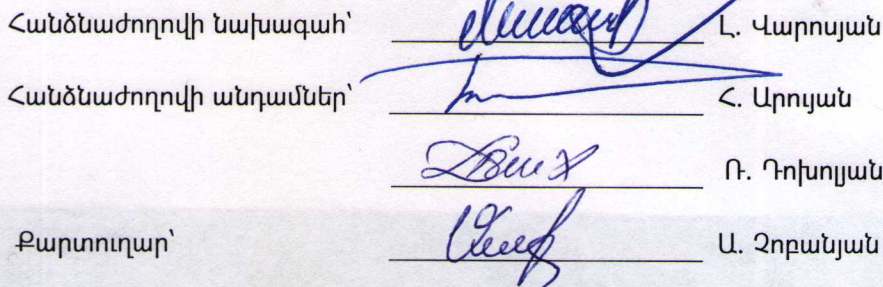 Հանձնաժողովի նախագահ՝ Լ. Վարոսյան
Հանձնաժողովի անդամներ՝ Հ. Արոյան
Ռ. Դոխոլյան
Քարտուղար՝ Ա. Չոբանյան